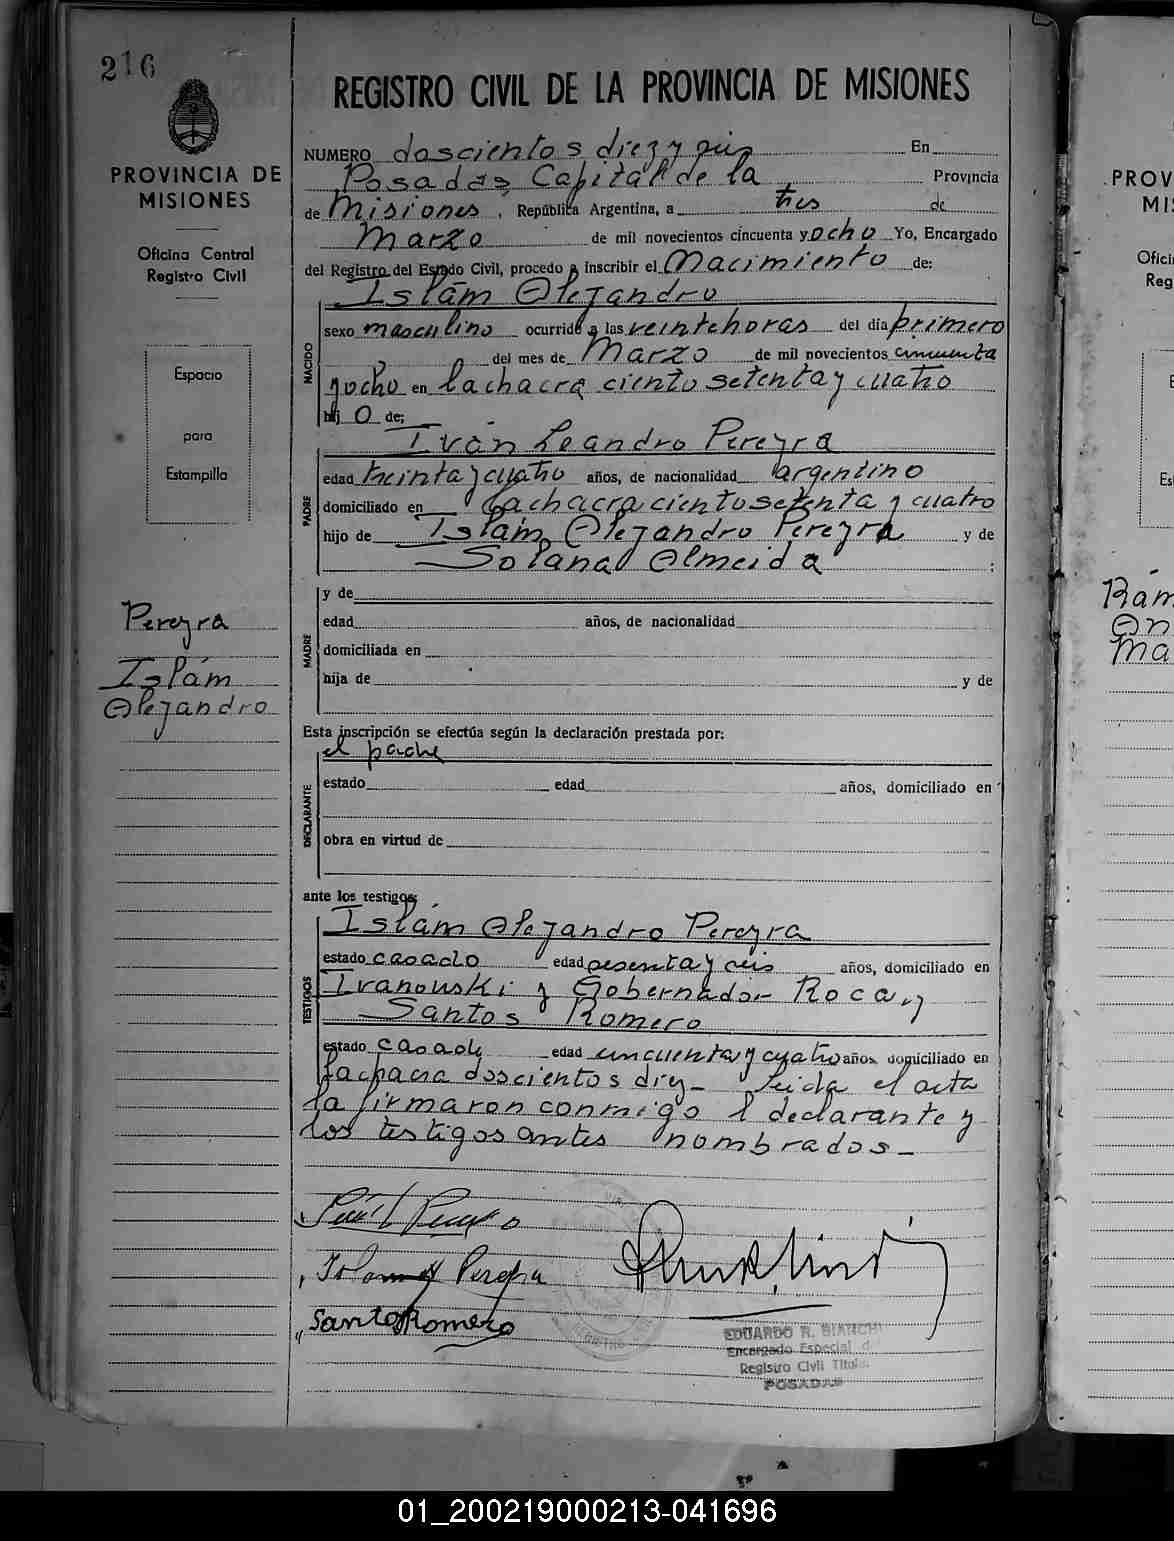 216
PROVINCIA DE
MISIONES
Oficina Central
Registro Civil
Espacio
para
Estampilla
Pereyra
Islám
Alejandro
REGISTRO CIVIL DE LA PROVINCIA DE MISIONES
NUMERO doscientos diez y seis En
Posadas, Capital de la Provincia
de Misiones, República Argentina, a tres de
Marzo de mil novecientos cincuenta y ocho Yo, Encargado
del Registro del Estado Civil, procedo a inscribir el Nacimiento de:
Islám Alejandro
NACIDO
sexo masculino ocurrido a las veinte horas del día primero
del mes de Marzo de mil novecientos cincuenta
y ocho en la chacra ciento setenta y cuatro
hij o de:
Iván Leandro Pereyra
PADRE
edad treinta y cuatro años, de nacionalidad argentino
domiciliado en la chacra ciento setenta y cuatro
hijo de Islám Alejandro Pereyra y de
Solana Almeida ;
MADRE
y de
edad años, de nacionalidad
domiciliada en
hija de y de
Esta inscripción se efectúa según la declaración prestada por:
el padre
DECLARANTE
estado edad años, domiciliado en
obra en virtud de
ante los testigos:
Islám Alejandro Pereyra
TESTIGOS
estado casado edad sesenta y seis años, domiciliado en
Ivanouski y Gobernador Roca, y
Santos Romero
estado casado edad cincuenta y cuatro años, domiciliado en
la chacra doscientos diez - Leida el acta
la firmaron conmigo el declarante y
los testigos antes nombrados -
Pereyra
Santos Romero
EDUARDO R. BIANCHI
Encargado Especial d
Registro Civil Titul.
POSADAS
PROV
MI
Ofici
Reg
E
Es
Rám
An
Ma
01_200219000213-041696